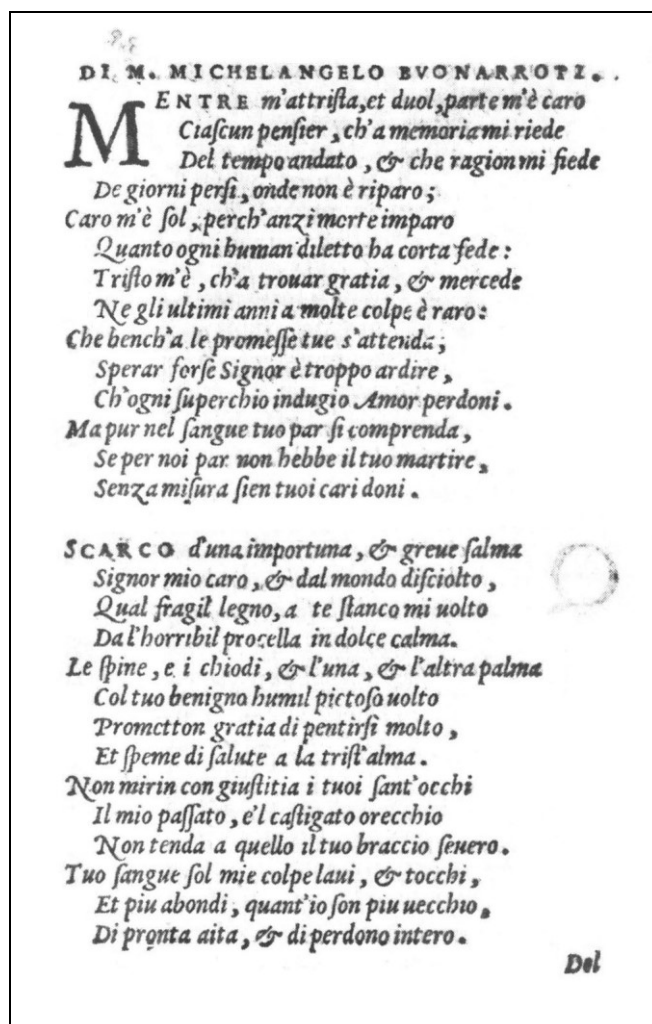 DI M. MICHELANGELO BVONARROTI.
MENTRE m'attrista, et duol, parte m'è caro
Ciascun pensier, ch'a memoria mi riede
Del tempo andato, & che ragion mi fiede
De giorni persi, onde non è riparo;
Caro m'è sol, perch'anzi morte imparo
Quanto ogni human diletto ha corta fede:
Tristo m'è, ch'a trouar gratia, & mercede
Ne gli ultimi anni a molte colpe è raro:
Che bench'a le promesse tue s'attenda;
Sperar forse Signor è troppo ardire,
Ch'ogni superchio indugio Amor perdoni.
Ma pur nel sangue tuo par si comprenda,
Se per noi par non hebbe il tuo martire,
Senza misura sien tuoi cari doni.
SCARCO d'una importuna, & greue salma
Signor mio caro, & dal mondo disciolto,
Qual fragil legno, a te stanco mi uolto
Da l'horribil procella in dolce calma.
Le spine, e i chiodi, & l'una, & l'altra palma
Col tuo benigno humil pietoso uolto
Prometton gratia di pentirsi molto,
Et speme di salute a la trist'alma.
Non mirin con giustitia i tuoi sant'occhi
Il mio passato, e'l castigato orecchio
Non tenda a quello il tuo braccio seuero.
Tuo sangue sol mie colpe laui, & tocchi,
Et piu abondi, quant'io son piu uecchio,
Di pronta aita, & di perdono intero.
Del